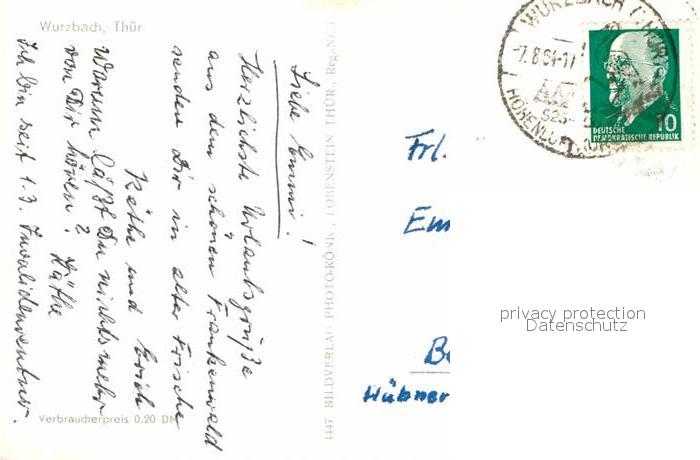 Wurzbach, Thür
Liebe Emmi!
Herzlichste Urlaubsgrüße
aus dem schönen Frankenwald
senden Dir in alter Frische
Käthe und Erich
Warum läßt Du nichts mehr
von Dir hören? Käthe
Ich bin seit 1.3. Invalidenrentner.
Verbraucherpreis 0.20 DM
4447 BILDVERLAG PHOTO-KÖNK, LOBENSTEIN THÜR. Reg.-Nr.
WURZBACH
-7.8.64-17
HÖHENLUFT
10
DEUTSCHE
DEMOKRATISCHE REPUBLIK
Frl.
Em
Be
Hübner
privacy protection
Datenschutz